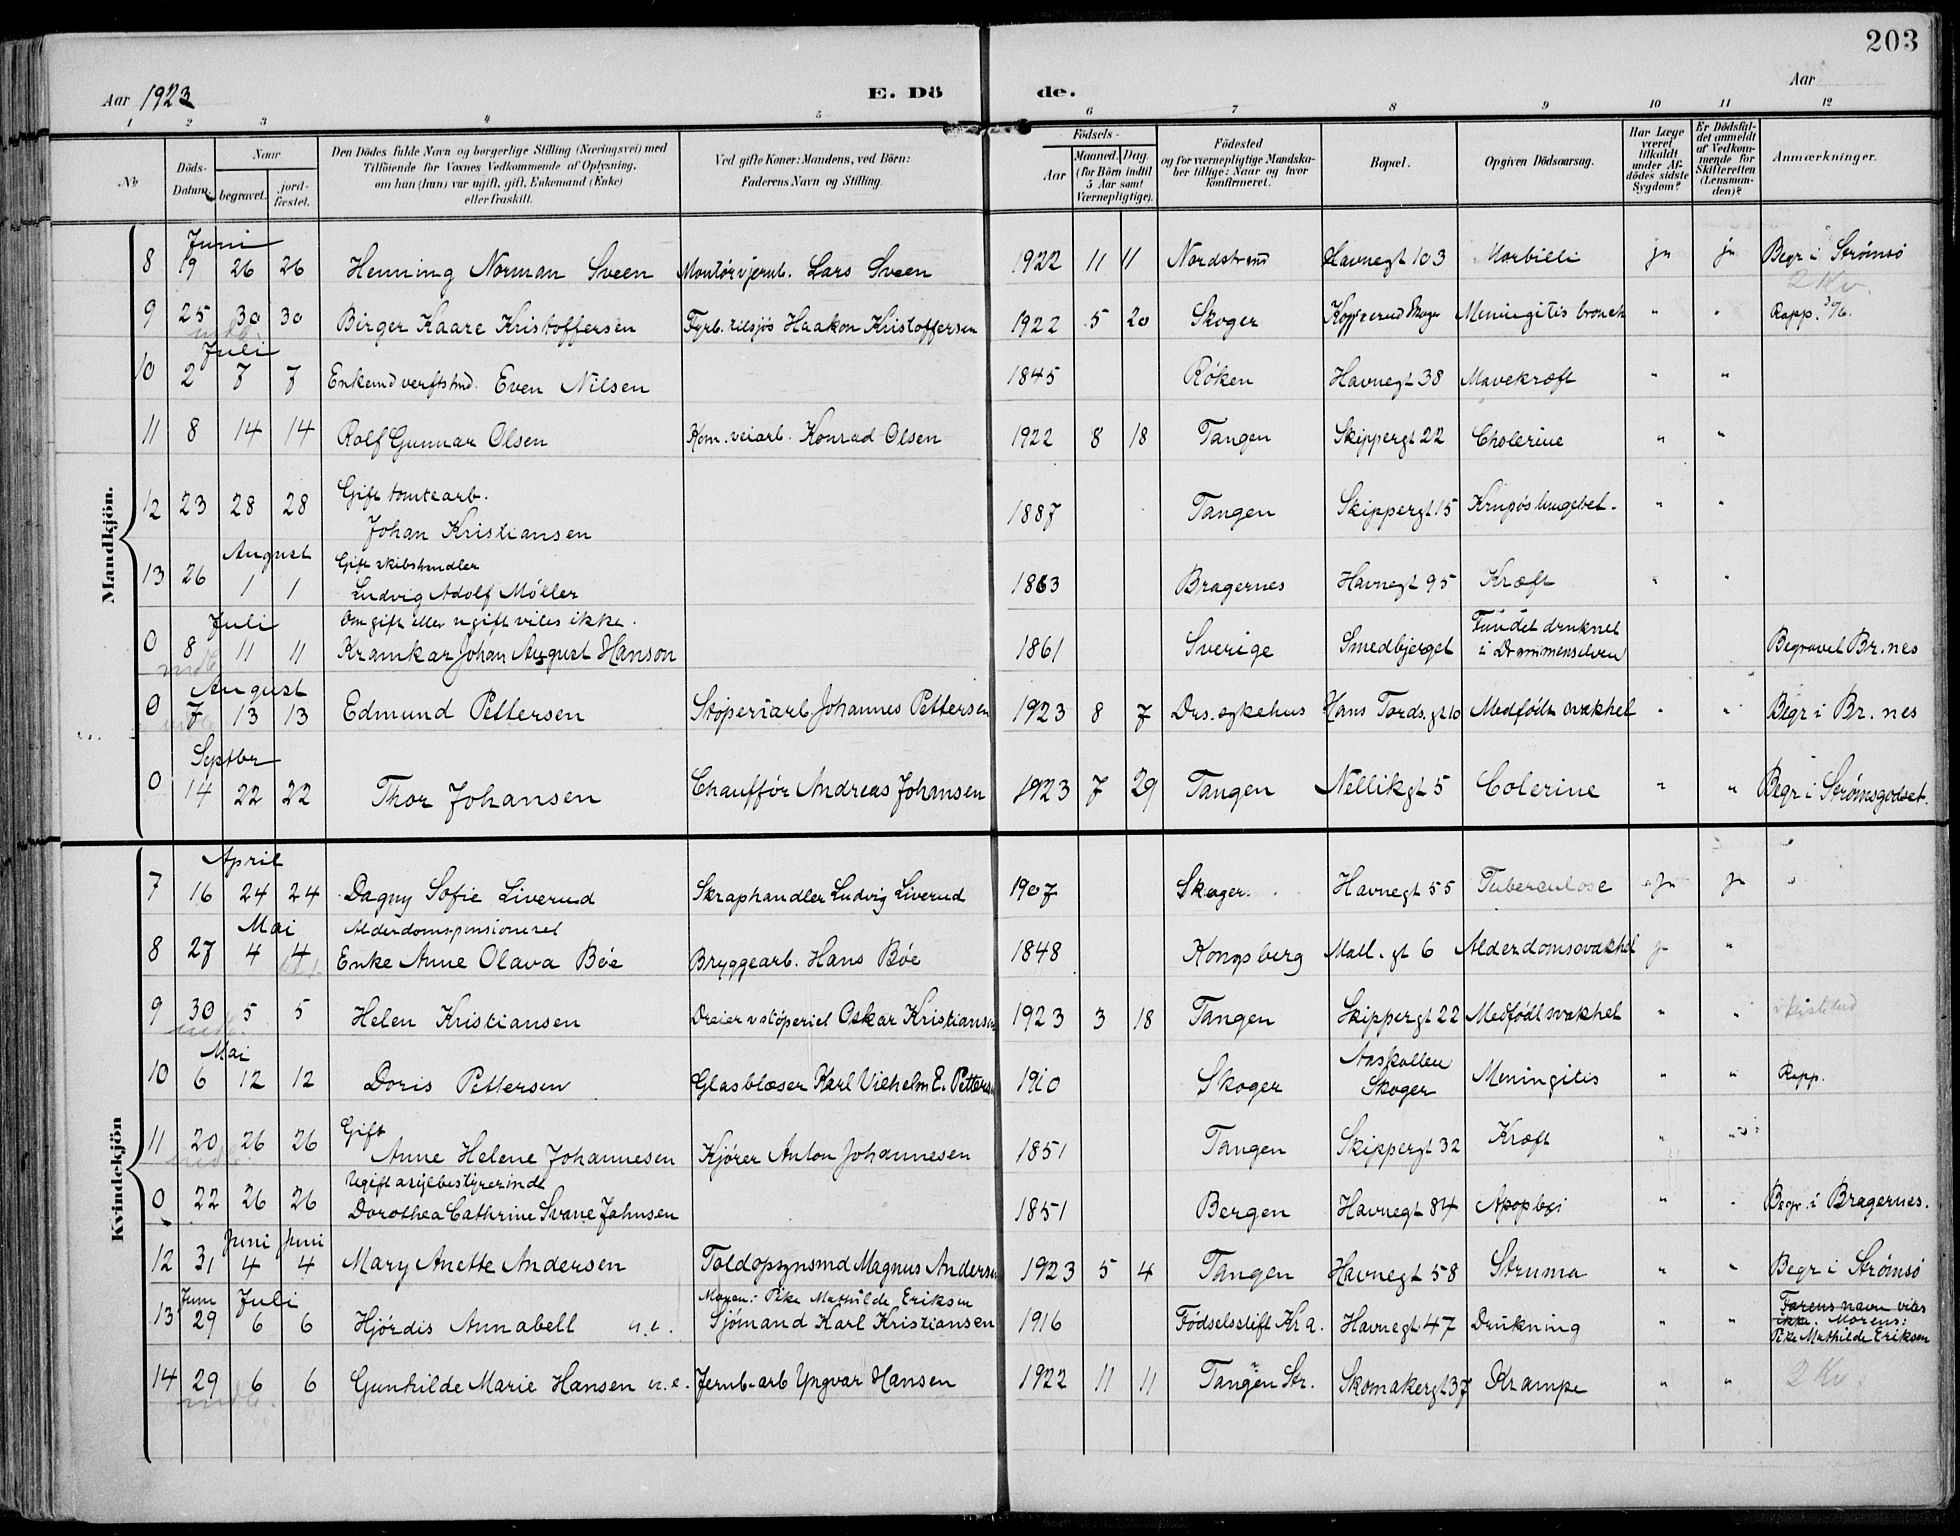 203
Aar 1923
E. Dö de.
Aar
1 2 3 4 5 6 7 8 9 10 11 12
No
Döds-Datum.
Naar
begravet.
jord-fæstet.
Den Dödes fulde Navn og borgerlige Stilling (Næringsvei) med
Tilföiende for Voxnes Vedkommende af Oplysning,
om han (hun) var ugift, gift, Enkemand (Enke)
eller fraskilt.
Ved gifte Koner: Mandens, ved Börn:
Faderens Navn og Stilling.
Födsels-
Aar
Maaned. Dag.
(for Börn indtil
5 Aar samt
Værnepligtige).
Födested
og for værnepligtige Mandska-
ber tillige: Naar og hvor
konfirmeret.
Bopæl.
Opgiven Dödsaarsag.
Har Læge
været
tilkaldt
under Af-
dödes sidste
Sygdom?
Er Dödsfal-
det anmeldt
af Vedkom-
mende for
Skifteretten
(Lensman-
den)?
Anmærkninger.
Mandkjön.
Juni
8 19 26 26 Henning Norman Sveen Montör v jernb. Lars Sveen 1922 11 11 Nordstrand Havnegt 103 Morbilli ja ja Begr i Strømsø
2 Kv.
9 25 30 30 Birger Kaare Kristoffersen Fyrb. tilsjøs Haakon Kristoffersen 1922 5 20 Skoger Kopperud Skoger Meningitis bronch " " Rapp. 30/6.
indb
Juli
10 2 7 7 Enkemd verftstmd. Even Nilsen 1845 Røken Havnegt 38 Mavekræft " "
11 8 14 14 Rolf Gunnar Olsen Kom. veiarb. Konrad Olsen 1922 8 18 Tangen Skippergt 22 Cholerine " "
12 23 28 28 Gift tomtearb.
Johan Kristiansen 1887 Tangen Skippergt 15 Krupøs lungebet. " "
August
13 26 1 1 Gift skibshandler
Ludvig Adolf Møller 1863 Bragernes Havnegt 95 Kræft " "
Juli
0 8 11 11 Om gift eller ugift vites ikke.
Kramkar Johan August Hanson 1861 Sverige Smedbjerget Fundet druknet
i Drammenselven Begravet Br.nes
indb
August
0 7 13 13 Edmund Pettersen Støperiarb Johannes Pettersen 1923 8 7 Drs. sykehus Hans Tords. gt 10 Medfødt svakhet " " Begr i Br.nes
indb
Septbr
0 14 22 22 Thor Johansen Chauffør Andreas Johansen 1923 7 29 Tangen Nellikgt 5 Colerine " " Begr i Strømsgodset.
Kvindekjön
April
7 16 24 24 Dagny Sofie Liverud Skraphandler Ludvig Liverud 1907 Skoger. Havnegt 55 Tuberculose ja ja
Mai
8 27 4 4 Alderdomspensioneret
Enke Anne Olava Bøe Bryggearb. Hans Bøe 1848 Kongsberg Mall. gt 6 Alderdomssvakhet ja "
9 30 5 5 Helen Kristiansen Dreier v støperiet Oskar Kristiansen 1923 3 18 Tangen Skippergt 22 Medfødt svakhet " "
indb.
Mai
10 6 12 12 Doris Pettersen Glasblæser Karl Vilhelm E. Pettersen 1910 Skoger Aaskollen
Skoger Meningitis " " Rapp.
11 20 26 26 Gift
Anne Helene Johannesen Kjører Anton Johannesen 1851 Tangen Skippergt 32 Kræft " "
indb
0 22 26 26 Ugift asylbestyrerinde
Dorothea Cathrine Svane Jahnsen 1851 Bergen Havnegt 84 Apoplexi " " Begr. i Bragernes.
Juni Juni
12 31 4 4 Mary Anette Andersen Toldopsynsmd Magnus Andersen 1923 5 4 Tangen Havnegt 58 Struma " " Begr i Strømsø
Juni Juli
13 29 6 6 Hjørdis Annabell u.e. Moren: Pike Mathilde Eriksen
Sjømand Karl Kristiansen 1916 Fødselsstift Kra. Havnegt 47 Drukning " " Farens navn vites
ikke. Morens:
Pike Mathilde Eriksen
14 29 6 6 Gunhilde Marie Hansen u.e. Jernb.arb Yngvar Hansen 1922 11 11 Tangen Str. Skomakergt 37 Krampe " " 2 Kv.
indb.